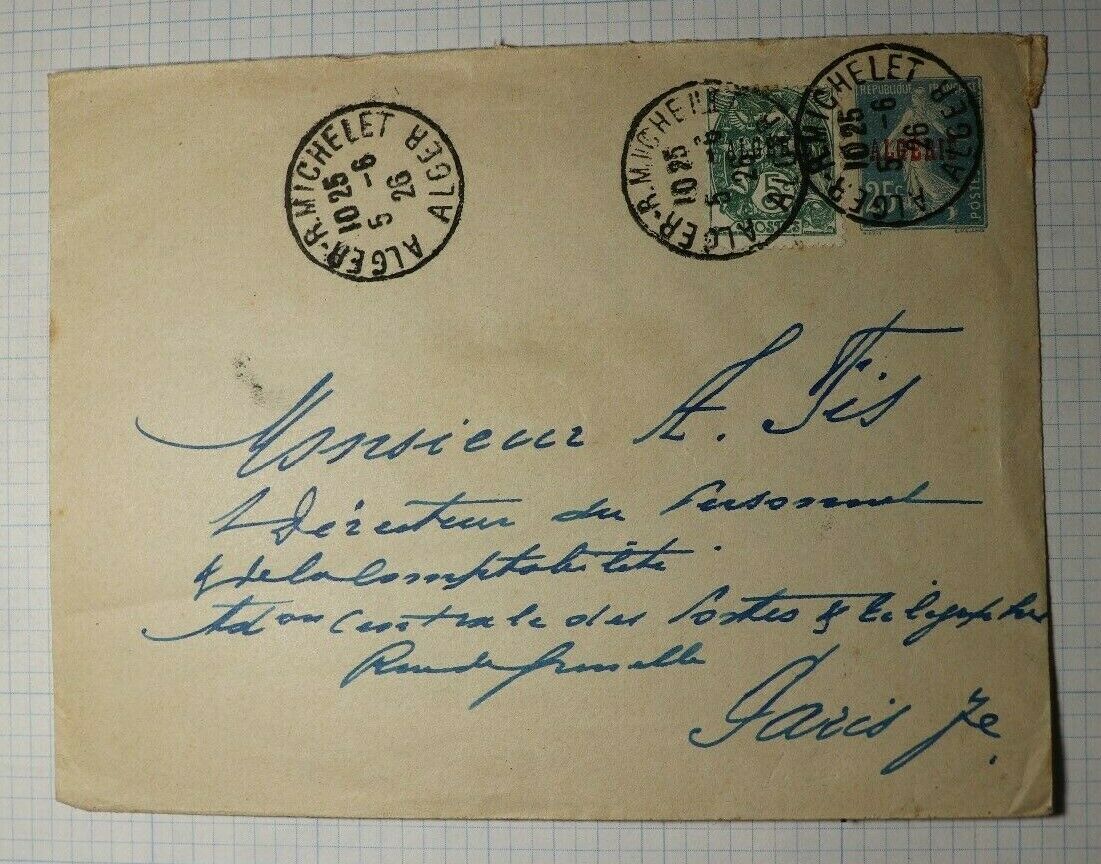 ALGER-R.MICHELET ALGER
10 25
5 -6
26
ALGER-R.MICHELET ALGER
10 25
5
26
5
POSTES
ALGER-R.MICHELET ALGER
10 25
5 -6
26
REPUBLIQUE FRANÇAISE
ALGERIE
25c
POSTES
Monsieur A. Fis
Directeur du Personnel
& de la Comptabilité
Adon Centrale des Postes & Télégraphes
Rue de Grenelle
Paris 7e